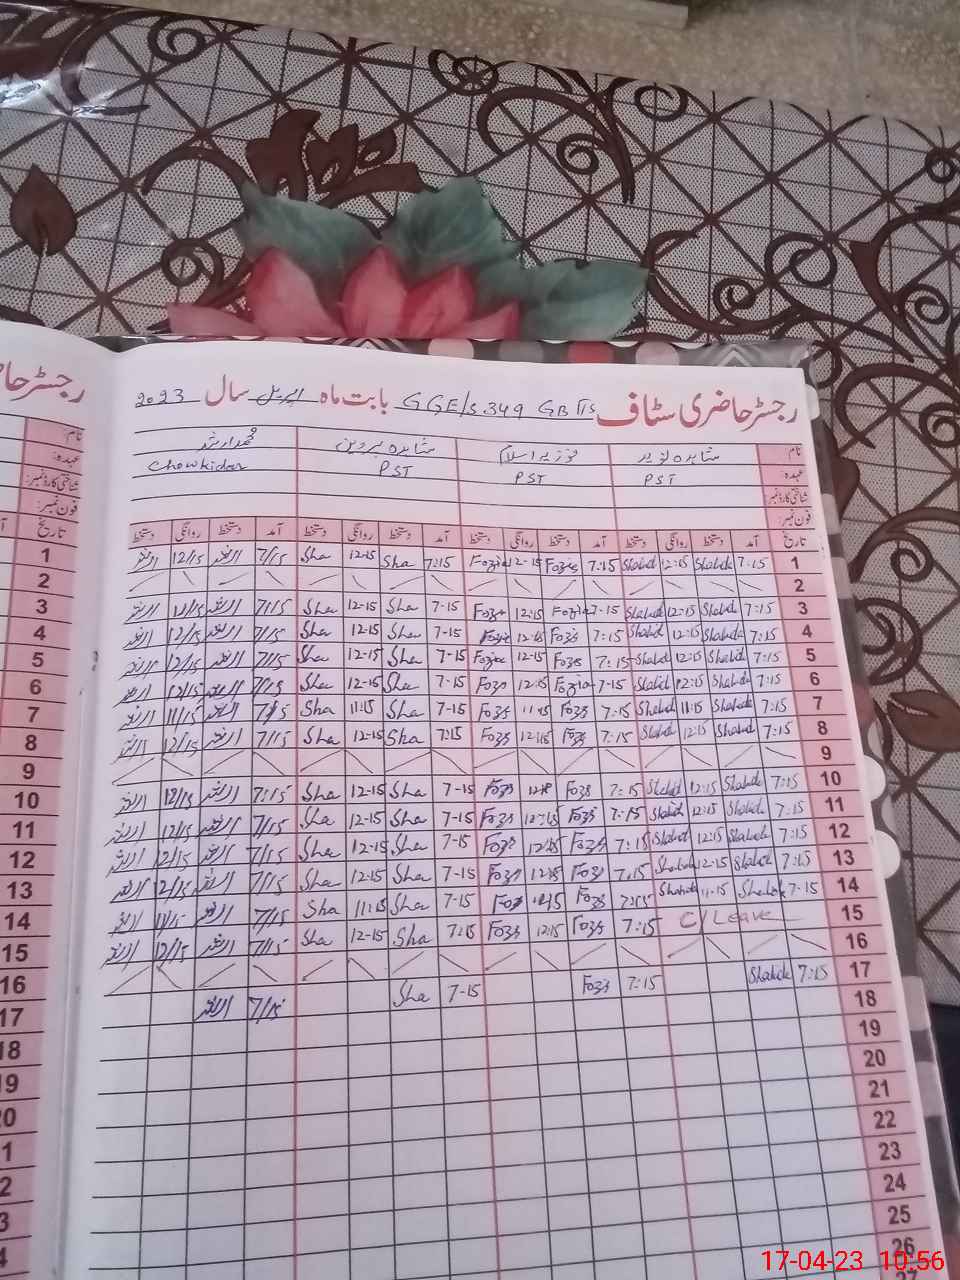 رجسٹر حاضری سٹاف GGE/S 349 GB TTS بابت ماہ اپریل سال 2023
نام شاہدہ نوید فوزیہ اسلام شاہدہ پروین محمد ارشد
عہدہ: PST PST PST Chowkidar
شناختی کارڈ نمبر:
فون نمبر:
تاریخ آمد دستخط روانگی دستخط آمد دستخط روانگی دستخط آمد دستخط روانگی دستخط آمد دستخط روانگی دستخط
1 7:15 Shahida 12:15 Shahid 7:15 Fozia 12-15 Fozia 7:15 Sha 12-15 Sha 7/15 ارشد 12/15 ارشد
2
3 7:15 Shahid 12:15 Shahid 7-15 Fozia 12:15 Fozia 7-15 Sha 12-15 Sha 7/15 ارشد 12/15 ارشد
4 7:15 Shahida 12:15 Shahid 7:15 Fozs 12:15 Fozia 7-15 Sha 12-15 Sha 7/15 ارشد 12/15 ارشد
5 7:15 Shahid 12:15 Shahid 7:15 Fozs 12-15 Fozia 7-15 Sha 12-15 Sha 7/15 ارشد 12/15 ارشد
6 7:15 Shahida 12:15 Shahid 7-15 Fozia 12:15 Fozs 7-15 Sha 12-15 Sha 7/15 ارشد 12/15 ارشد
7 7:15 Shahid 11:15 Shahid 7:15 Fozs 11:15 Fozs 7-15 Sha 11:15 Sha 7/15 ارشد 11/15 ارشد
8 7:15 Shahid 12:15 Shahid 7:15 Fozs 12:15 Fozs 7:15 Sha 12-15 Sha 7/15 ارشد 12/15 ارشد
9
10 7:15 Shahida 12:15 Shahid 7:15 Fozs 12:15 Fozs 7-15 Sha 12-15 Sha 7:15 ارشد 12/15 ارشد
11 7:15 Shahid 12:15 Shahid 7-15 Fozs 12:15 Fozs 7-15 Sha 12-15 Sha 7/15 ارشد 12/15 ارشد
12 7:15 Shahid 12:15 Shahid 7:15 Fozs 12:15 Fozs 7-15 Sha 12-15 Sha 7/15 ارشد 12/15 ارشد
13 7:15 Shahid 12-15 Shahid 7:15 Fozs 12:15 Fozs 7-15 Sha 12-15 Sha 7/15 ارشد 12/15 ارشد
14 7-15 Shahid 11-15 Shahid 7:15 Fozs 11:15 Fozs 7-15 Sha 11:15 Sha 7/15 ارشد 11/15 ارشد
15 C/Leave 7:15 Fozs 12:15 Fozs 7:15 Sha 12-15 Sha 7/15 ارشد 12/15 ارشد
16
17 7:15 Shahid 7:15 Fozs 7-15 Sha 7/15 ارشد
18
19
20
21
22
23
24
25
26
رجسٹر حا
نام
عہدہ:
شناختی کارڈ نمبر:
فون نمبر:
تاریخ
1
2
3
4
5
6
7
8
9
10
11
12
13
14
15
16
17
18
17-04-23 10:56